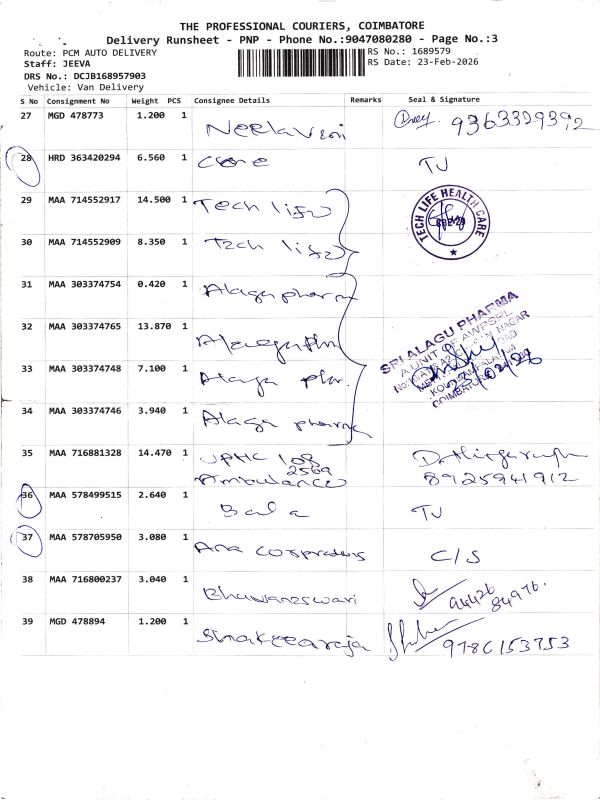 THE PROFESSIONAL COURIERS, COIMBATORE
Delivery Runsheet - PNP - Phone No.:9047080280 - Page No.:3
Route: PCM AUTO DELIVERY
RS No.: 1689579
Staff: JEEVA
RS Date: 23-Feb-2026
DRS No.: DCJB168957903
Vehicle: Van Delivery
S No Consignment No Weight PCS Consignee Details Remarks Seal & Signature
27 MGD 478773 1.200 1 Neelaveni 9363329392
28 HRD 363420294 6.560 1 TJ
29 MAA 714552917 14.500 1 Tech life
TECH LIFE HEALTH CARE
30 MAA 714552909 8.350 1 Tech life
31 MAA 303374754 0.420 1 Alaga pharma
SRI ALAGU PHARMA
A UNIT OF AWPSPL
32 MAA 303374765 13.870 1
33 MAA 303374748 7.100 1 Alaga phar.
23/02/26
34 MAA 303374746 3.940 1 Alaga pharma
35 MAA 716881328 14.470 1 UPHC 108
2569
Ambulance 8925941912
36 MAA 578499515 2.640 1 Bala TJ
37 MAA 578705950 3.080 1 C/S
38 MAA 716800237 3.040 1 Bhuvaneswari 94426
84976.
39 MGD 478894 1.200 1 9786153753